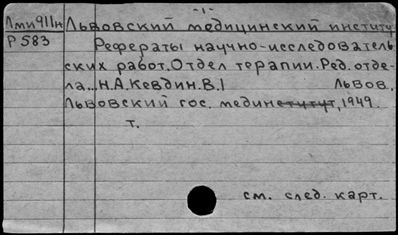 -1-
Лми911н Львовский медицинский институт
Р583 Рефераты научно-исследователь
ских работ. Отдел терапии. Ред. отде-
ла... Н.А.Кевдин. В.1 Львов,
Львовский гос. мединститут, 1949.
т.
см. след. карт.